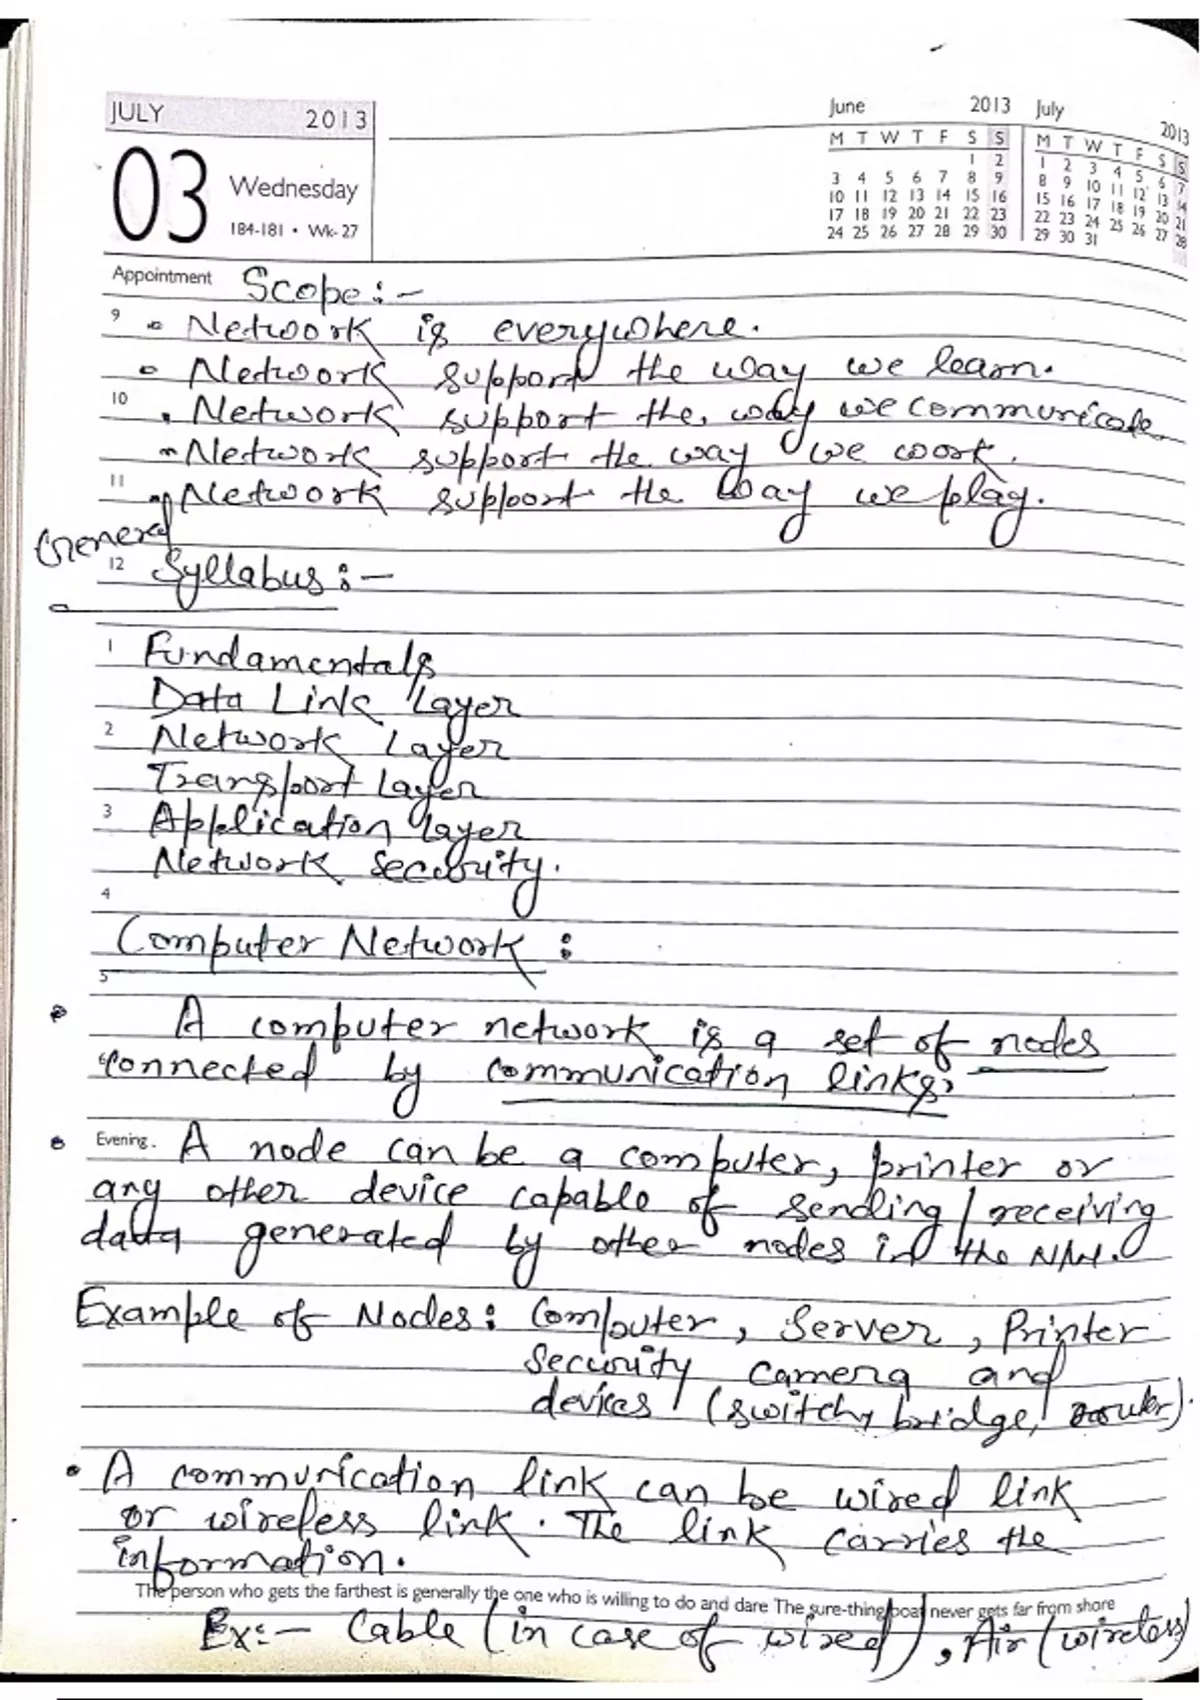 JULY 2013
03 Wednesday
184-181 • Wk-27
June 2013
M T W T F S S
1 2
3 4 5 6 7 8 9
10 11 12 13 14 15 16
17 18 19 20 21 22 23
24 25 26 27 28 29 30
July 2013
M T W T F S S
1 2 3 4 5 6 7
8 9 10 11 12 13 14
15 16 17 18 19 20 21
22 23 24 25 26 27 28
29 30 31
Appointment Scope:-
9 • Network is everywhere.
• Network support the way we learn.
10 • Network support the way we communicate.
• Network support the way we work.
11 • Network support the way we play.
General
12 Syllabus:-
1 Fundamentals
Data Link Layer
2 Network Layer
Transport Layer
3 Application Layer
Network Security.
4
Computer Network:
5
• A computer network is a set of nodes
connected by communication links.
• Evening. A node can be a computer, printer or
any other device capable of sending/receiving
data generated by other nodes in the N/W.
Example of Nodes: Computer, Server, Printer
Security camera and
devices (switch, bridge, router).
• A communication link can be wired link
or wireless link. The link carries the
information.
The person who gets the farthest is generally the one who is willing to do and dare The sure-thing boat never gets far from shore
Ex:- Cable (in case of wired), Air (wireless)